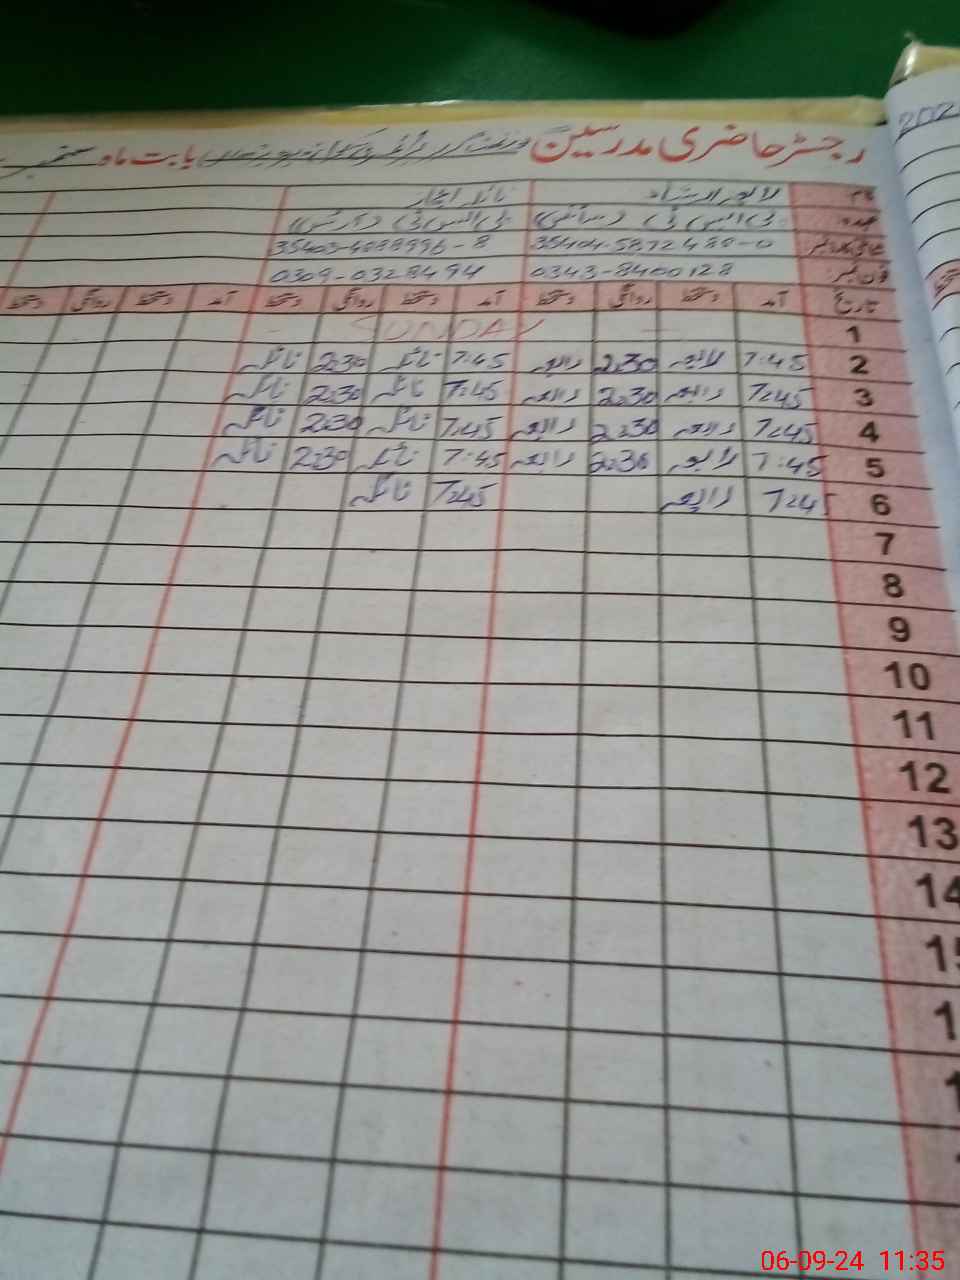 رجسٹر حاضری مدرسین بابت ماہ ستمبر
202
نام
عہدہ ای ایس ٹی (سائنس) ای ایس ٹی (آرٹس)
شناختی کارڈ نمبر 35404-5872480-0 35403-4088996-8
فون نمبر: 0343-8400128 0309-0328494
تاریخ آمد دستخط روانگی دستخط آمد دستخط روانگی دستخط آمد دستخط روانگی دستخط
1 SUNDAY
2 7:45 رابعہ 2:30 رابعہ 7:45 نائلہ 2:30 نائلہ
3 7:45 رابعہ 2:30 رابعہ 7:45 نائلہ 2:30 نائلہ
4 7:45 رابعہ 2:30 رابعہ 7:45 نائلہ 2:30 نائلہ
5 7:45 رابعہ 2:30 رابعہ 7:45 نائلہ 2:30 نائلہ
6 7:45 رابعہ 7:45 نائلہ
7
8
9
10
11
12
13
14
15
06-09-24 11:35